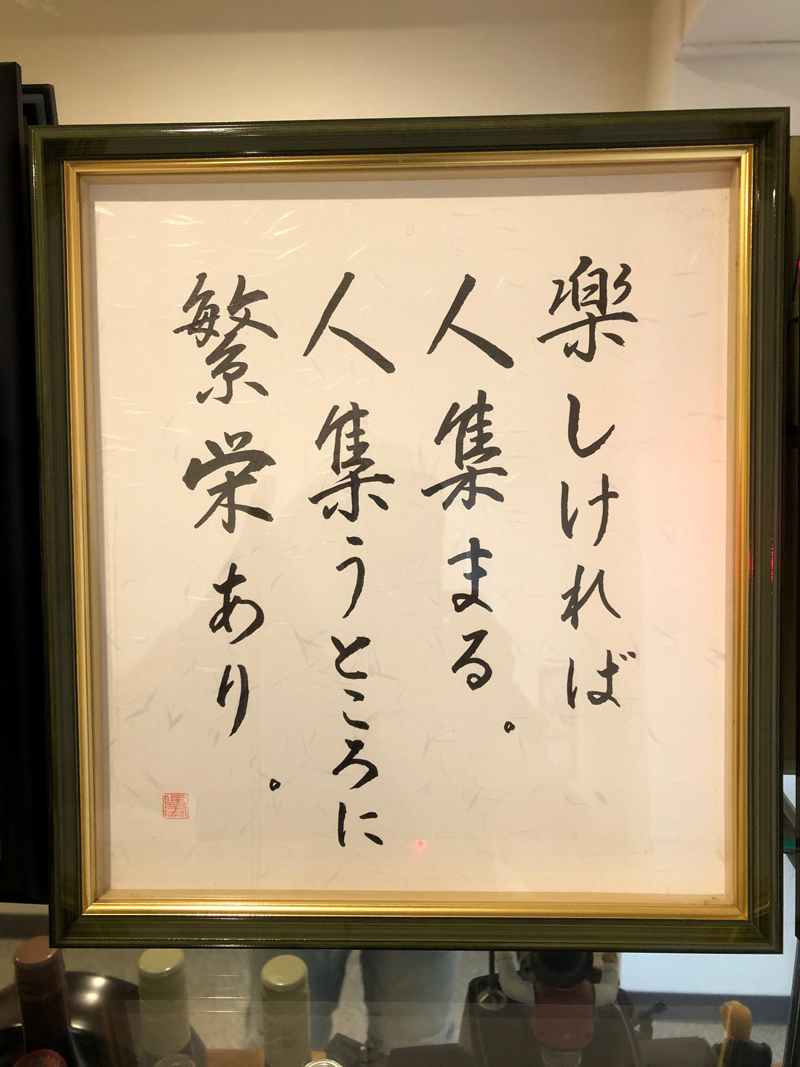 楽しければ
人集まる。
人集うところに
繁栄あり。